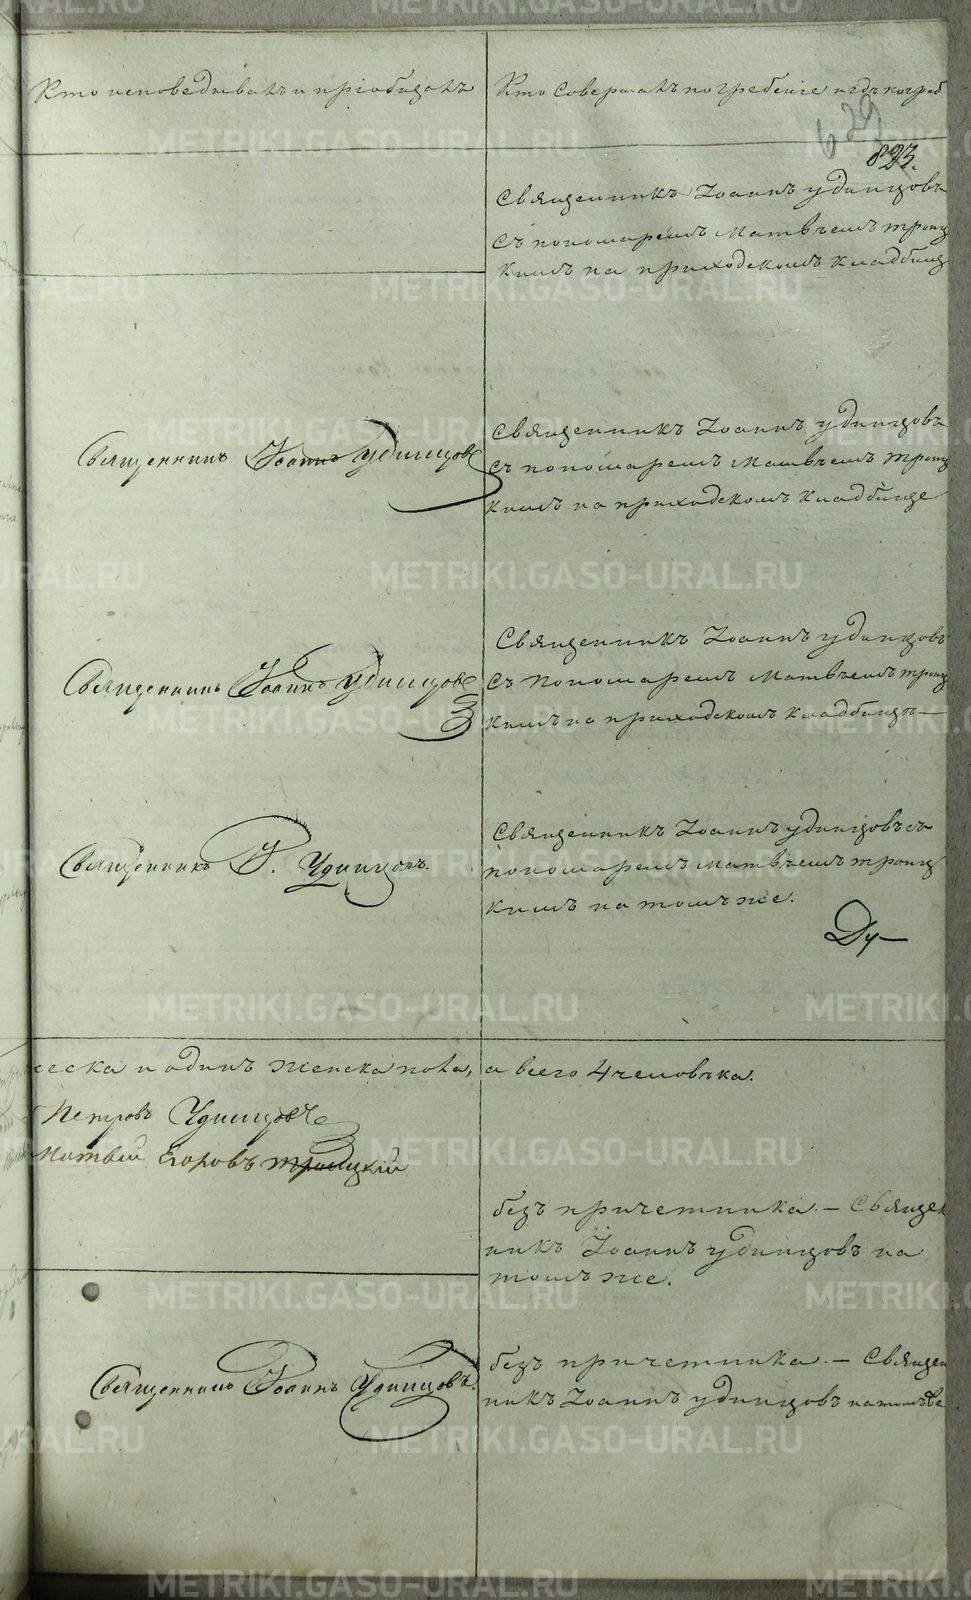 Кто исповедывалъ и пріобщалъ
Кто совершалъ погребеніе и гдѣ погреб
629
823.
Священникъ Іоаннъ Удинцовъ
съ пономаремъ Матвѣемъ Троиц
кимъ на приходскомъ кладбищ
Священникъ Іоаннъ Удинцовъ
Священникъ Іоаннъ Удинцовъ
съ пономаремъ Матвѣемъ Троиц
кимъ на приходскомъ кладбище
Священникъ Іоаннъ Удинцовъ
Священникъ Іоаннъ Удинцовъ
съ пономаремъ Матвѣемъ Троиц
кимъ на приходскомъ кладбищѣ
Священникъ І. Удинцовъ.
Священникъ Іоаннъ Удинцовъ съ
пономаремъ Матвѣемъ Троиц
кимъ на томъ же.
ческа и одинъ женска пола, а всего 4 человѣка.
Петровъ Удинцовъ
Матвѣй Егоровъ Троицкій
безъ причетника. — Священ
никъ Іоаннъ Удинцовъ на
томъ же.
Священникъ Іоаннъ Удинцовъ.
безъ причетника. — Священ
никъ Іоаннъ Удинцовъ на томъ же
METRIKI.GASO-URAL.RU